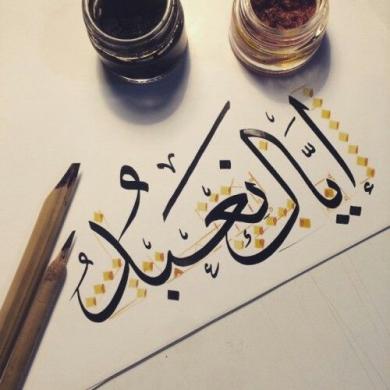 إيّاك نعبد